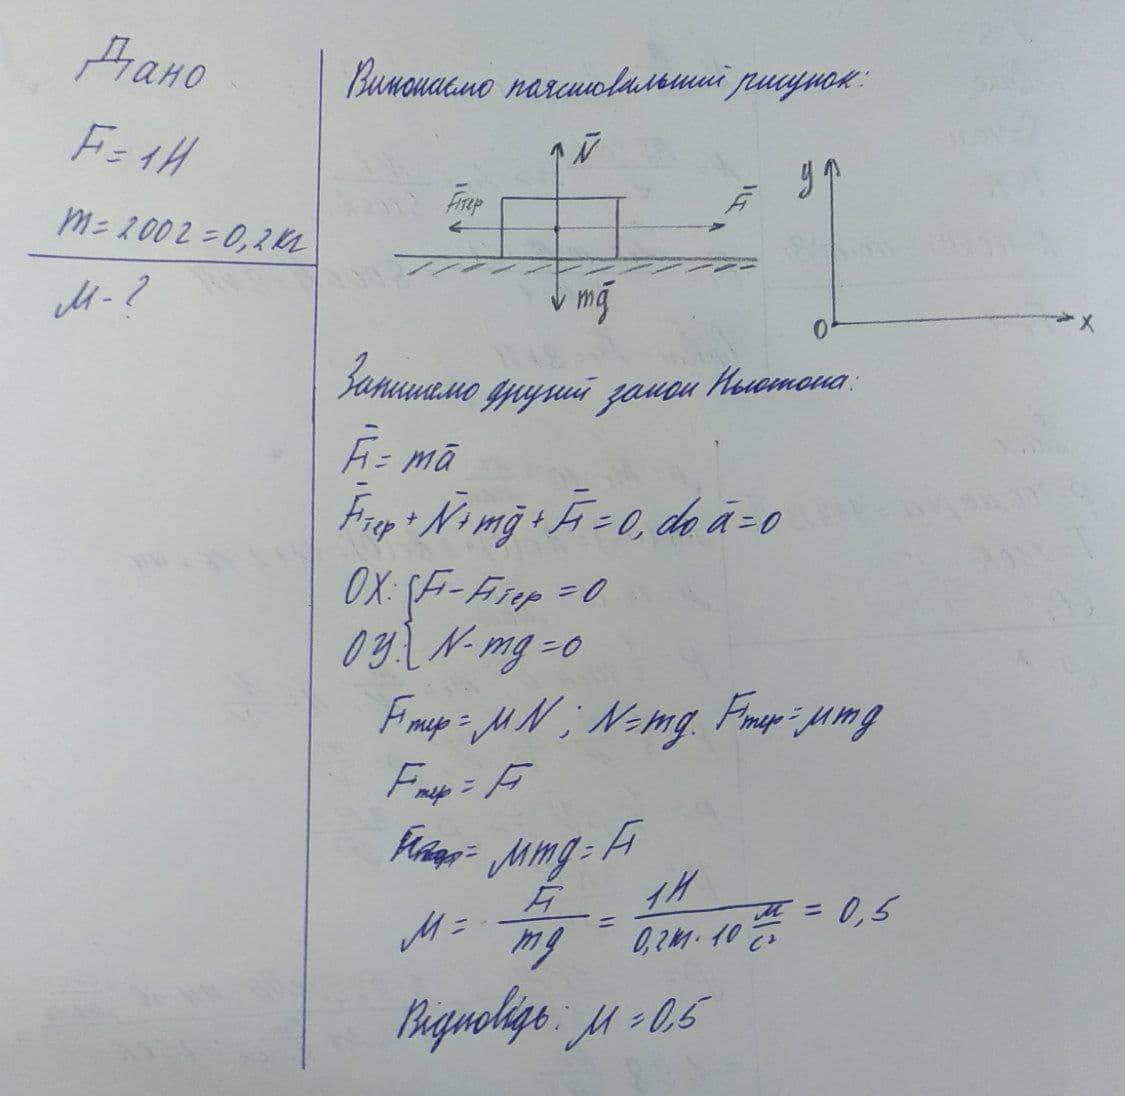 Дано
F = 1Н
m = 200г = 0,2кг
μ - ?
Виконаємо пояснювальний рисунок:
N̄
F̄тер
F̄
mḡ
y
0
x
Запишемо другий закон Ньютона:
F̄ = mā
F̄тер + N̄ + mḡ + F̄ = 0, do ā = 0
OX: { F - Fтер = 0
OY: { N - mg = 0
Fтер = μN ; N = mg. Fтер = μmg
Fтер = F
= μmg = F
μ = F/mg = 1Н/0,2кг · 10 м/с² = 0,5
Відповідь: μ = 0,5